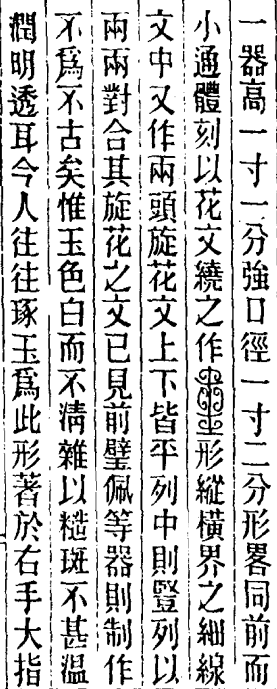 一器高一寸一分強口徑一寸二分形畧同前而
小通體刻以花文繞之作形縱橫界之細線
文中又作兩頭旋花文上下皆平列中則豎列以
兩兩對合其旋花之文已見前璧佩等器則制作
不爲不古矣惟玉色白而不淸雜以䊁斑不甚溫
潤明透耳今人往往琢玉爲此形著於右手大指